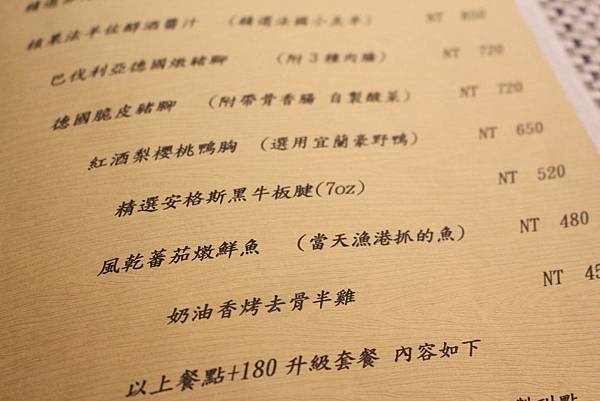 核果法羊佐醇酒醬汁 (精選法國小羔羊) NT 850
巴伐利亞德國燉豬腳 (附3種肉腸) NT 720
德國脆皮豬腳 (附帶骨香腸 自製酸菜) NT 720
紅酒梨櫻桃鴨胸 (選用宜蘭豪野鴨) NT 650
精選安格斯黑牛板腱(7oz) NT 520
風乾蕃茄燉鮮魚 (當天漁港抓的魚) NT 480
奶油香烤去骨半雞 NT 45
以上餐點+180 升級套餐 內容如下